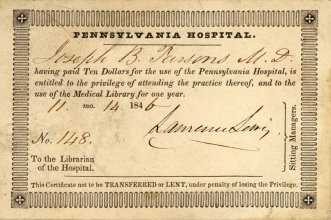 PENNSYLVANIA HOSPITAL.
Joseph B. Parsons M.D.
having paid Ten Dollars for the use of the Pennsylvania Hospital, is
entitled to the privilege of attending the practice thereof, and to the
use of the Medical Library for one year.
11. mo. 14. 1846
No. 148.
Lawrence Lewis
Sitting Managers.
To the Librarian
of the Hospital.
This Certificate not to be TRANSFERRED or LENT, under penalty of losing the Privilege.